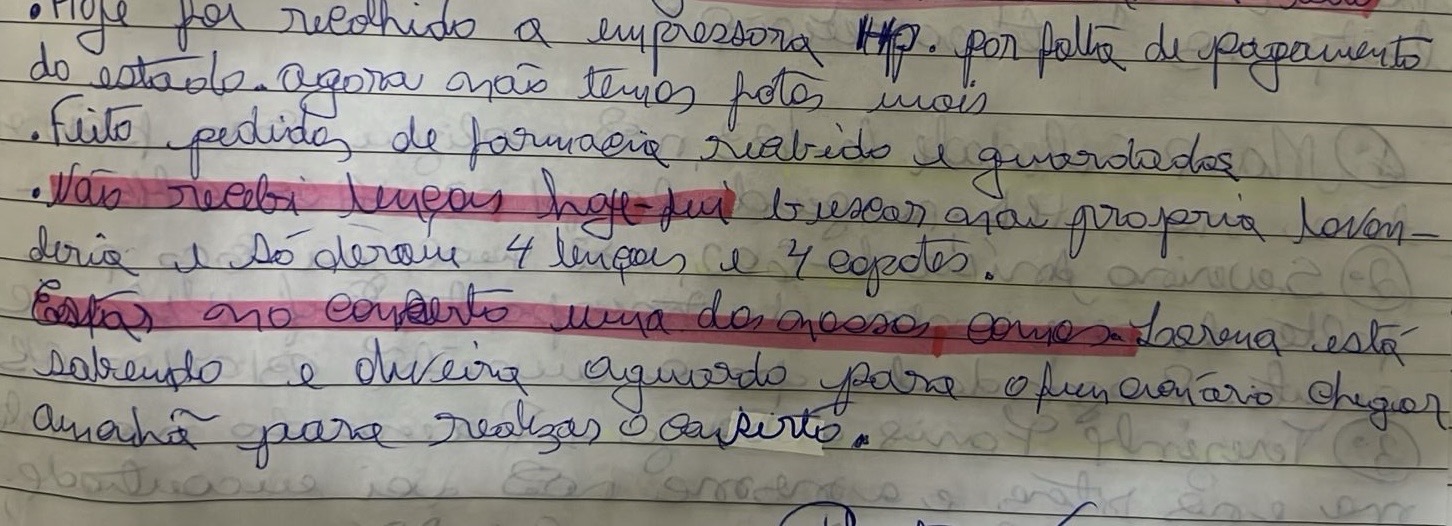 . Hoje foi recolhido a empressora HP. por falta de pagamento
do estado. agora não temos fotos mais
. Feito pedidos de farmacia recebido e guardados
. Não recebi lençois hoje-fui buscar na propria lavan-
deria e só deram 4 lençois e 4 capotes.
Estar no conserto uma das nossas camas. está
sabendo e aguardo para o funcionário chegar
amanhã para realizar o conserto.